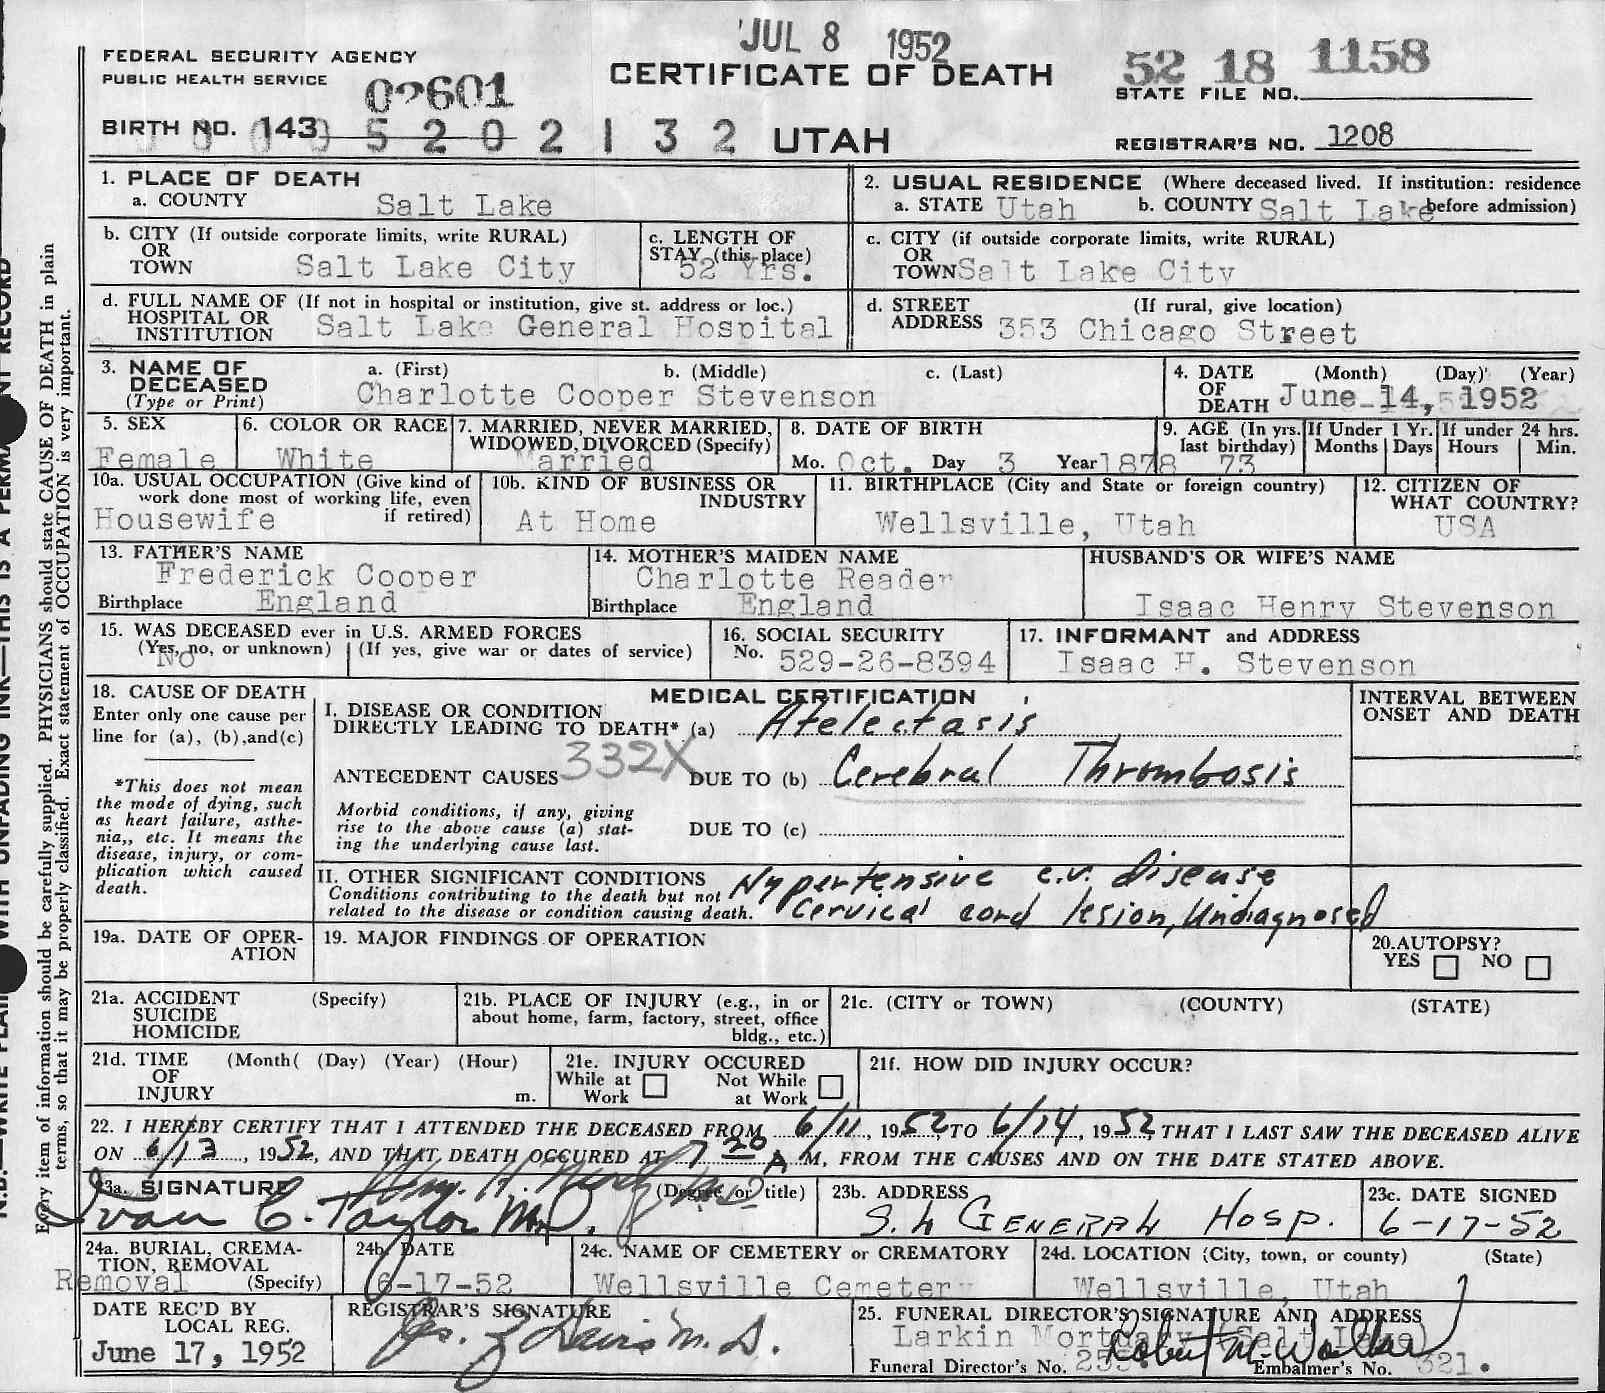 JUL 8 1952
FEDERAL SECURITY AGENCY
PUBLIC HEALTH SERVICE
02601
CERTIFICATE OF DEATH
52 18 1158
STATE FILE NO.
BIRTH NO. 143
5 2 0 2 1 3 2 UTAH
REGISTRAR'S NO. 1208
1. PLACE OF DEATH
a. COUNTY Salt Lake
2. USUAL RESIDENCE (Where deceased lived. If institution: residence before admission)
a. STATE Utah b. COUNTY Salt Lake
b. CITY (If outside corporate limits, write RURAL)
OR
TOWN Salt Lake City
c. LENGTH OF
STAY (this place)
52 Yrs.
c. CITY (if outside corporate limits, write RURAL)
OR
TOWN Salt Lake City
d. FULL NAME OF (If not in hospital or institution, give st. address or loc.)
HOSPITAL OR
INSTITUTION Salt Lake General Hospital
d. STREET (If rural, give location)
ADDRESS 353 Chicago Street
3. NAME OF
DECEASED
(Type or Print)
a. (First) b. (Middle) c. (Last)
Charlotte Cooper Stevenson
4. DATE (Month) (Day) (Year)
OF
DEATH June 14, 1952
5. SEX
Female
6. COLOR OR RACE
White
7. MARRIED, NEVER MARRIED,
WIDOWED, DIVORCED (Specify)
Married
8. DATE OF BIRTH
Mo. Oct. Day 3 Year 1878
9. AGE (In yrs. last birthday)
73
If Under 1 Yr.
Months Days
If under 24 hrs.
Hours Min.
10a. USUAL OCCUPATION (Give kind of
work done most of working life, even
if retired)
Housewife
10b. KIND OF BUSINESS OR
INDUSTRY
At Home
11. BIRTHPLACE (City and State or foreign country)
Wellsville, Utah
12. CITIZEN OF
WHAT COUNTRY?
USA
13. FATHER'S NAME
Frederick Cooper
Birthplace England
14. MOTHER'S MAIDEN NAME
Charlotte Reader
Birthplace England
HUSBAND'S OR WIFE'S NAME
Isaac Henry Stevenson
15. WAS DECEASED ever in U.S. ARMED FORCES
(Yes, no, or unknown) (If yes, give war or dates of service)
No
16. SOCIAL SECURITY
No. 529-26-8394
17. INFORMANT and ADDRESS
Isaac H. Stevenson
18. CAUSE OF DEATH
Enter only one cause per
line for (a), (b), and (c)
*This does not mean
the mode of dying, such
as heart failure, asthe-
nia,, etc. It means the
disease, injury, or com-
plication which caused
death.
MEDICAL CERTIFICATION
I. DISEASE OR CONDITION
DIRECTLY LEADING TO DEATH* (a) Atelectasis
ANTECEDENT CAUSES 332X DUE TO (b) Cerebral Thrombosis
Morbid conditions, if any, giving
rise to the above cause (a) stat-
ing the underlying cause last.
DUE TO (c)
INTERVAL BETWEEN
ONSET AND DEATH
II. OTHER SIGNIFICANT CONDITIONS
Conditions contributing to the death but not
related to the disease or condition causing death.
Hypertensive c.v. disease
Cervical cord lesion, Undiagnosed
19a. DATE OF OPER-
ATION
19. MAJOR FINDINGS OF OPERATION
20. AUTOPSY?
YES NO
21a. ACCIDENT (Specify)
SUICIDE
HOMICIDE
21b. PLACE OF INJURY (e.g., in or
about home, farm, factory, street, office
bldg., etc.)
21c. (CITY or TOWN) (COUNTY) (STATE)
21d. TIME (Month( (Day) (Year) (Hour)
OF
INJURY m.
21e. INJURY OCCURED
While at Work Not While at Work
21f. HOW DID INJURY OCCUR?
22. I HEREBY CERTIFY THAT I ATTENDED THE DECEASED FROM 6/11, 1952, TO 6/14, 1952, THAT I LAST SAW THE DECEASED ALIVE
ON 6/13, 1952, AND THAT DEATH OCCURED AT 7 20 A M, FROM THE CAUSES AND ON THE DATE STATED ABOVE.
23a. SIGNATURE (Degree or title)
Ivan C. Taylor MD.
23b. ADDRESS
S. L GENERAL HOSP.
23c. DATE SIGNED
6-17-52
24a. BURIAL, CREMA-
TION, REMOVAL
(Specify)
Removal
24b. DATE
6-17-52
24c. NAME OF CEMETERY or CREMATORY
Wellsville Cemetery
24d. LOCATION (City, town, or county) (State)
Wellsville, Utah
DATE REC'D BY
LOCAL REG.
June 17, 1952
REGISTRAR'S SIGNATURE
25. FUNERAL DIRECTOR'S SIGNATURE AND ADDRESS
Larkin Mortuary (Salt Lake)
Funeral Director's No. Embalmer's No. 321.
Every item of information should be carefully supplied. PHYSICIANS should state CAUSE OF DEATH in plain
terms, so that it may be properly classified. Exact statement of OCCUPATION is very important.